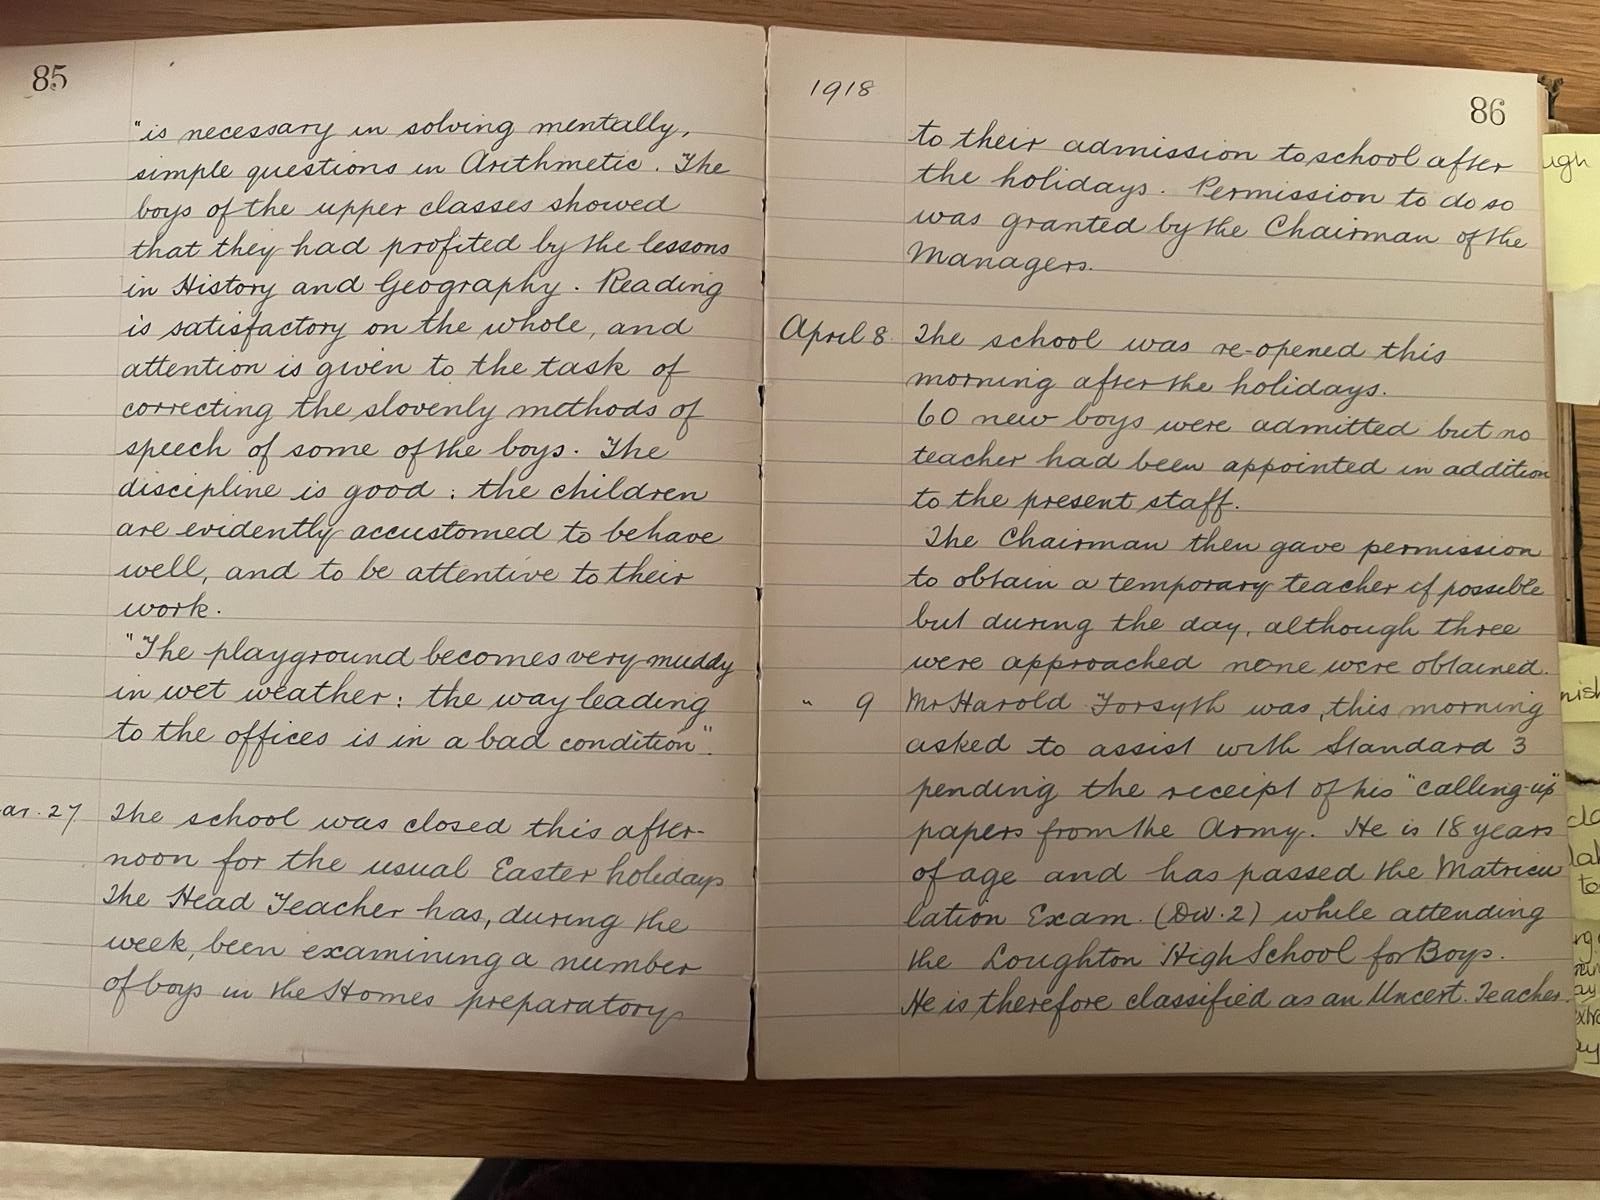 85
"is necessary in solving mentally,
simple questions in Arithmetic. The
boys of the upper classes showed
that they had profited by the lessons
in History and Geography. Reading
is satisfactory on the whole, and
attention is given to the task of
correcting the slovenly methods of
speech of some of the boys. The
discipline is good : the children
are evidently accustomed to behave
well, and to be attentive to their
work.
"The playground becomes very muddy
in wet weather : the way leading
to the offices is in a bad condition".
ar. 27 The school was closed this after-
noon for the usual Easter holidays
The Head Teacher has, during the
week, been examining a number
of boys in the Homes preparatory
1918
86
to their admission to school after
the holidays. Permission to do so
was granted by the Chairman of the
Managers.
April 8. The school was re-opened this
morning after the holidays.
60 new boys were admitted but no
teacher had been appointed in addition
to the present staff.
The Chairman then gave permission
to obtain a temporary teacher if possible
but during the day, although three
were approached none were obtained.
" 9 Mr Harold Forsyth was, this morning
asked to assist with Standard 3
pending the receipt of his "calling-up"
papers from the Army. He is 18 years
of age and has passed the Matricu
lation Exam. (Div. 2) while attending
the Loughton High School for Boys.
He is therefore classified as an Uncert. Teacher.
ugh